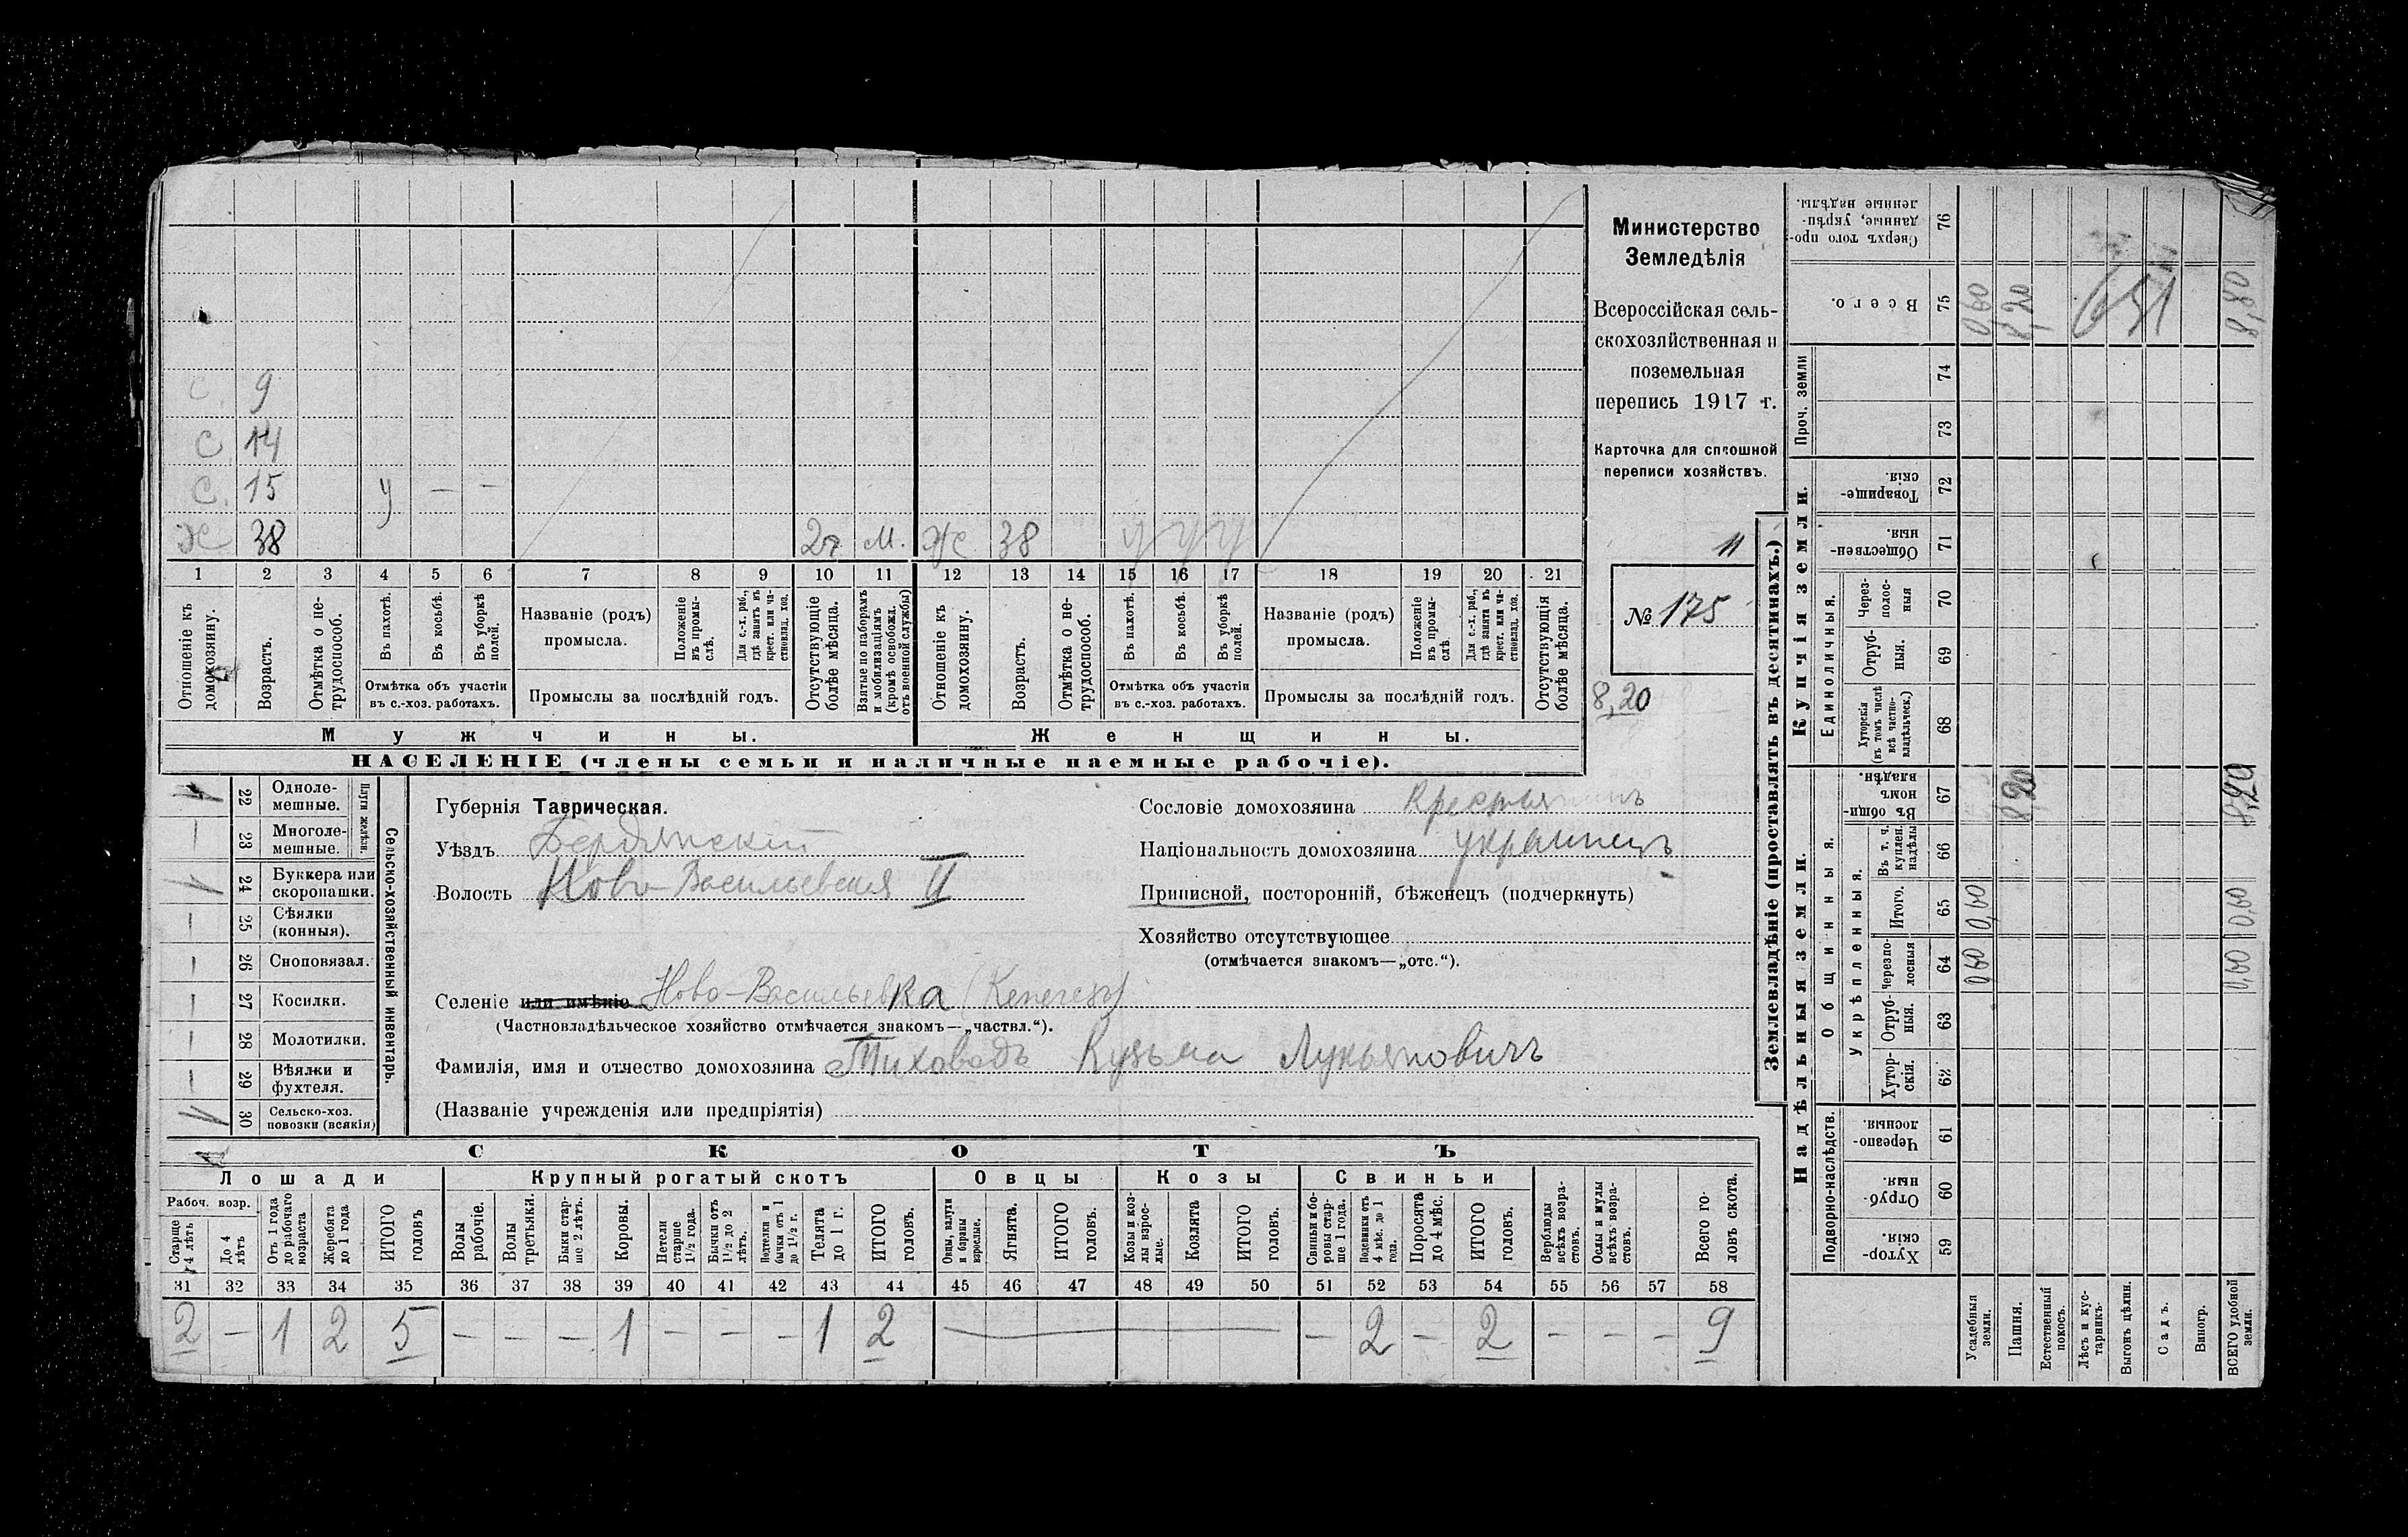 Министерство
Земледѣлія
Всероссійская сель-
скохозяйственная и
поземельная
перепись 1917 г.
Карточка для сплошной
переписи хозяйствъ.
11
№ 175
8,20
С. 9
С 14
С. 15 у — —
Ж 38 2г. м. Ж 38 у у у
1 2 3 4 5 6 7 8 9 10 11 12 13 14 15 16 17 18 19 20 21
Отношеніе къ домохозяину.
Возрастъ.
Отмѣтка о не-трудоспособ.
Въ пахотѣ.
Въ косьбѣ.
Въ уборкѣ полей.
Отмѣтка объ участіи
въ с.-хоз. работахъ.
Названіе (родъ)
промысла.
Положеніе въ промы-слѣ.
Для с.-х. раб., гдѣ занятъ въ крест. или ча-стновлад. хоз.
Промыслы за послѣдній годъ.
Отсутствующіе болѣе мѣсяца.
Взятые по наборамъ и мобилизаціямъ (кромѣ освобожд. отъ военной службы)
Отношеніе къ домохозяину.
Возрастъ.
Отмѣтка о не-трудоспособ.
Въ пахотѣ.
Въ косьбѣ.
Въ уборкѣ полей.
Отмѣтка объ участіи
въ с.-хоз. работахъ.
Названіе (родъ)
промысла.
Положеніе въ промы-слѣ
Для с.-х. раб., гдѣ занята въ крест. или ча-стновлад. хоз.
Промыслы за послѣдній годъ.
Отсутствующія болѣе мѣсяца.
Мужчины.
Женщины.
НАСЕЛЕНІЕ (члены семьи и наличные наемные рабочіе).
22 Одноле-мешные.
23 Многоле-мешные.
Плуги желѣзн.
24 Буккера или скоропашки.
25 Сѣялки (конныя).
26 Сноповязал.
27 Косилки.
28 Молотилки.
29 Вѣялки и фухтеля.
30 Сельско-хоз. повозки (всякія)
Сельско-хозяйственный инвентарь.
Губернія Таврическая.
Уѣздъ Бердянскій
Волость Ново-Васильевская II
Селеніе или имѣніе Ново-Васильевка (Кенегезъ)
(Частновладѣльческое хозяйство отмѣчается знакомъ—„частвл.“).
Фамилія, имя и отчество домохозяина Тиховодъ Кузьма Лукьяновичъ
(Названіе учрежденія или предпріятія)
Сословіе домохозяина Крестьянинъ
Національность домохозяина украинецъ
Приписной, посторонній, бѣженецъ (подчеркнуть)
Хозяйство отсутствующее
(отмѣчается знакомъ—„отс.“).
СКОТЪ
Лошади
Крупный рогатый скотъ
Овцы
Козы
Свиньи
Рабоч. возр.
Старше 4 лѣтъ
До 4 лѣтъ
Отъ 1 года до рабочаго возраста
Жеребята до 1 года
ИТОГО головъ
Волы рабочіе.
Волы третьяки.
Быки стар-ше 2 лѣтъ.
Коровы.
Нетели старше 1½ года.
Бычки отъ 1½ до 2 лѣтъ.
Подтелки и бычки отъ 1 до 1½ г.
Телята до 1 г.
ИТОГО головъ.
Овцы, валухи и бараны взрослые.
Ягнята.
ИТОГО головъ.
Козы и коз-лы взрос-лые.
Козлята
ИТОГО головъ.
Свиньи и бо-ровы стар-ше 1 года.
Подсвинки отъ 4 мѣс. до 1 года.
Поросята до 4 мѣс.
ИТОГО головъ.
Верблюды всѣхъ возра-стовъ.
Ослы и мулы всѣхъ возра-стовъ.
Всего го-ловъ скота.
31 32 33 34 35 36 37 38 39 40 41 42 43 44 45 46 47 48 49 50 51 52 53 54 55 56 57 58
2 — 1 2 5 — — — 1 — — — 1 2 — — 2 — 2 — — — 9
Землевладѣніе (проставлять въ десятинахъ.)
Надѣльныя земли.
Купчія земли.
Проч. земли
Подворно-наслѣдств.
Общинныя.
Укрѣпленныя.
Единоличныя.
Сверхъ того про-данные, укрѣп-ленные надѣлы. 76
Всего. 75 0,60 8,20 651 8,80
74
73
Товарище-скія 72
Обществен-ныя 71
Через-полос-ныя 70
Отруб-ныя. 69
Хуторскія (въ томъ числѣ всѣ частно-владѣльческ.) 68
Въ общи-номъ владѣн. 67 8,20 8,20
Въ т. ч. куплен. надѣлы 66
Итого. 65 0,60 0,60
Черезпо-лосныя 64 0,60 0,60
Отруб-ныя. 63
Хутор-скія. 62
Черезпо-лосныя. 61
Отруб-ныя. 60
Хутор-скія. 59
Усадебныя земли.
Пашня.
Естественный покосъ.
Лѣсъ и кус-тарникъ.
Выгонъ цѣлин.
Садъ.
Виногр.
ВСЕГО удобной земли.